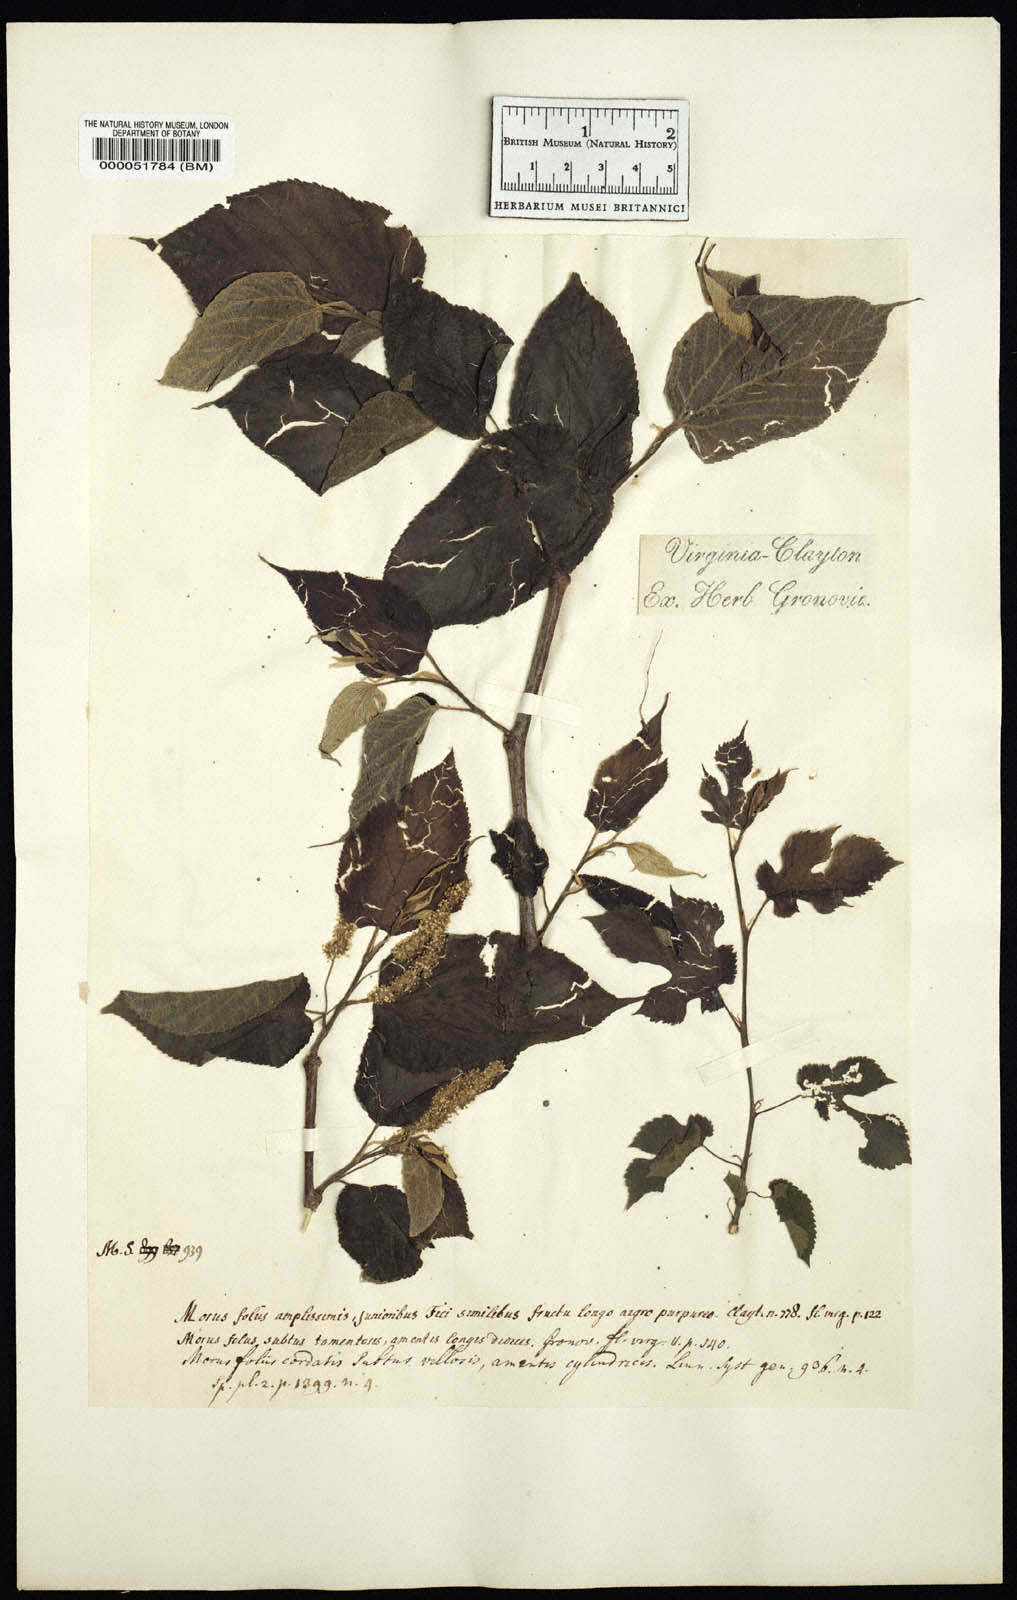 THE NATURAL HISTORY MUSEUM, LONDON
DEPARTMENT OF BOTANY
000051784 (BM)
1 2
BRITISH MUSEUM (NATURAL HISTORY)
1 2 3 4 5
HERBARIUM MUSEI BRITANNICI
Virginia-Clayton
Ex. Herb Gronovic.
M. S. 939
Morus foliis amplissimis, junioribus Fici similibus fructu longo nigro purpureo. Clayt. n. 778. fl. virg. p. 122
Morus foliis, subtus tomentosis, amentis longis dioicis. Gronov. fl. virg. II. p. 140.
Morus foliis cordatis subtus villosis, amentis cylindricis. Linn. Syst gen. 936. n. 4.
Sp. pl. 2. p. 1399. n. 4.